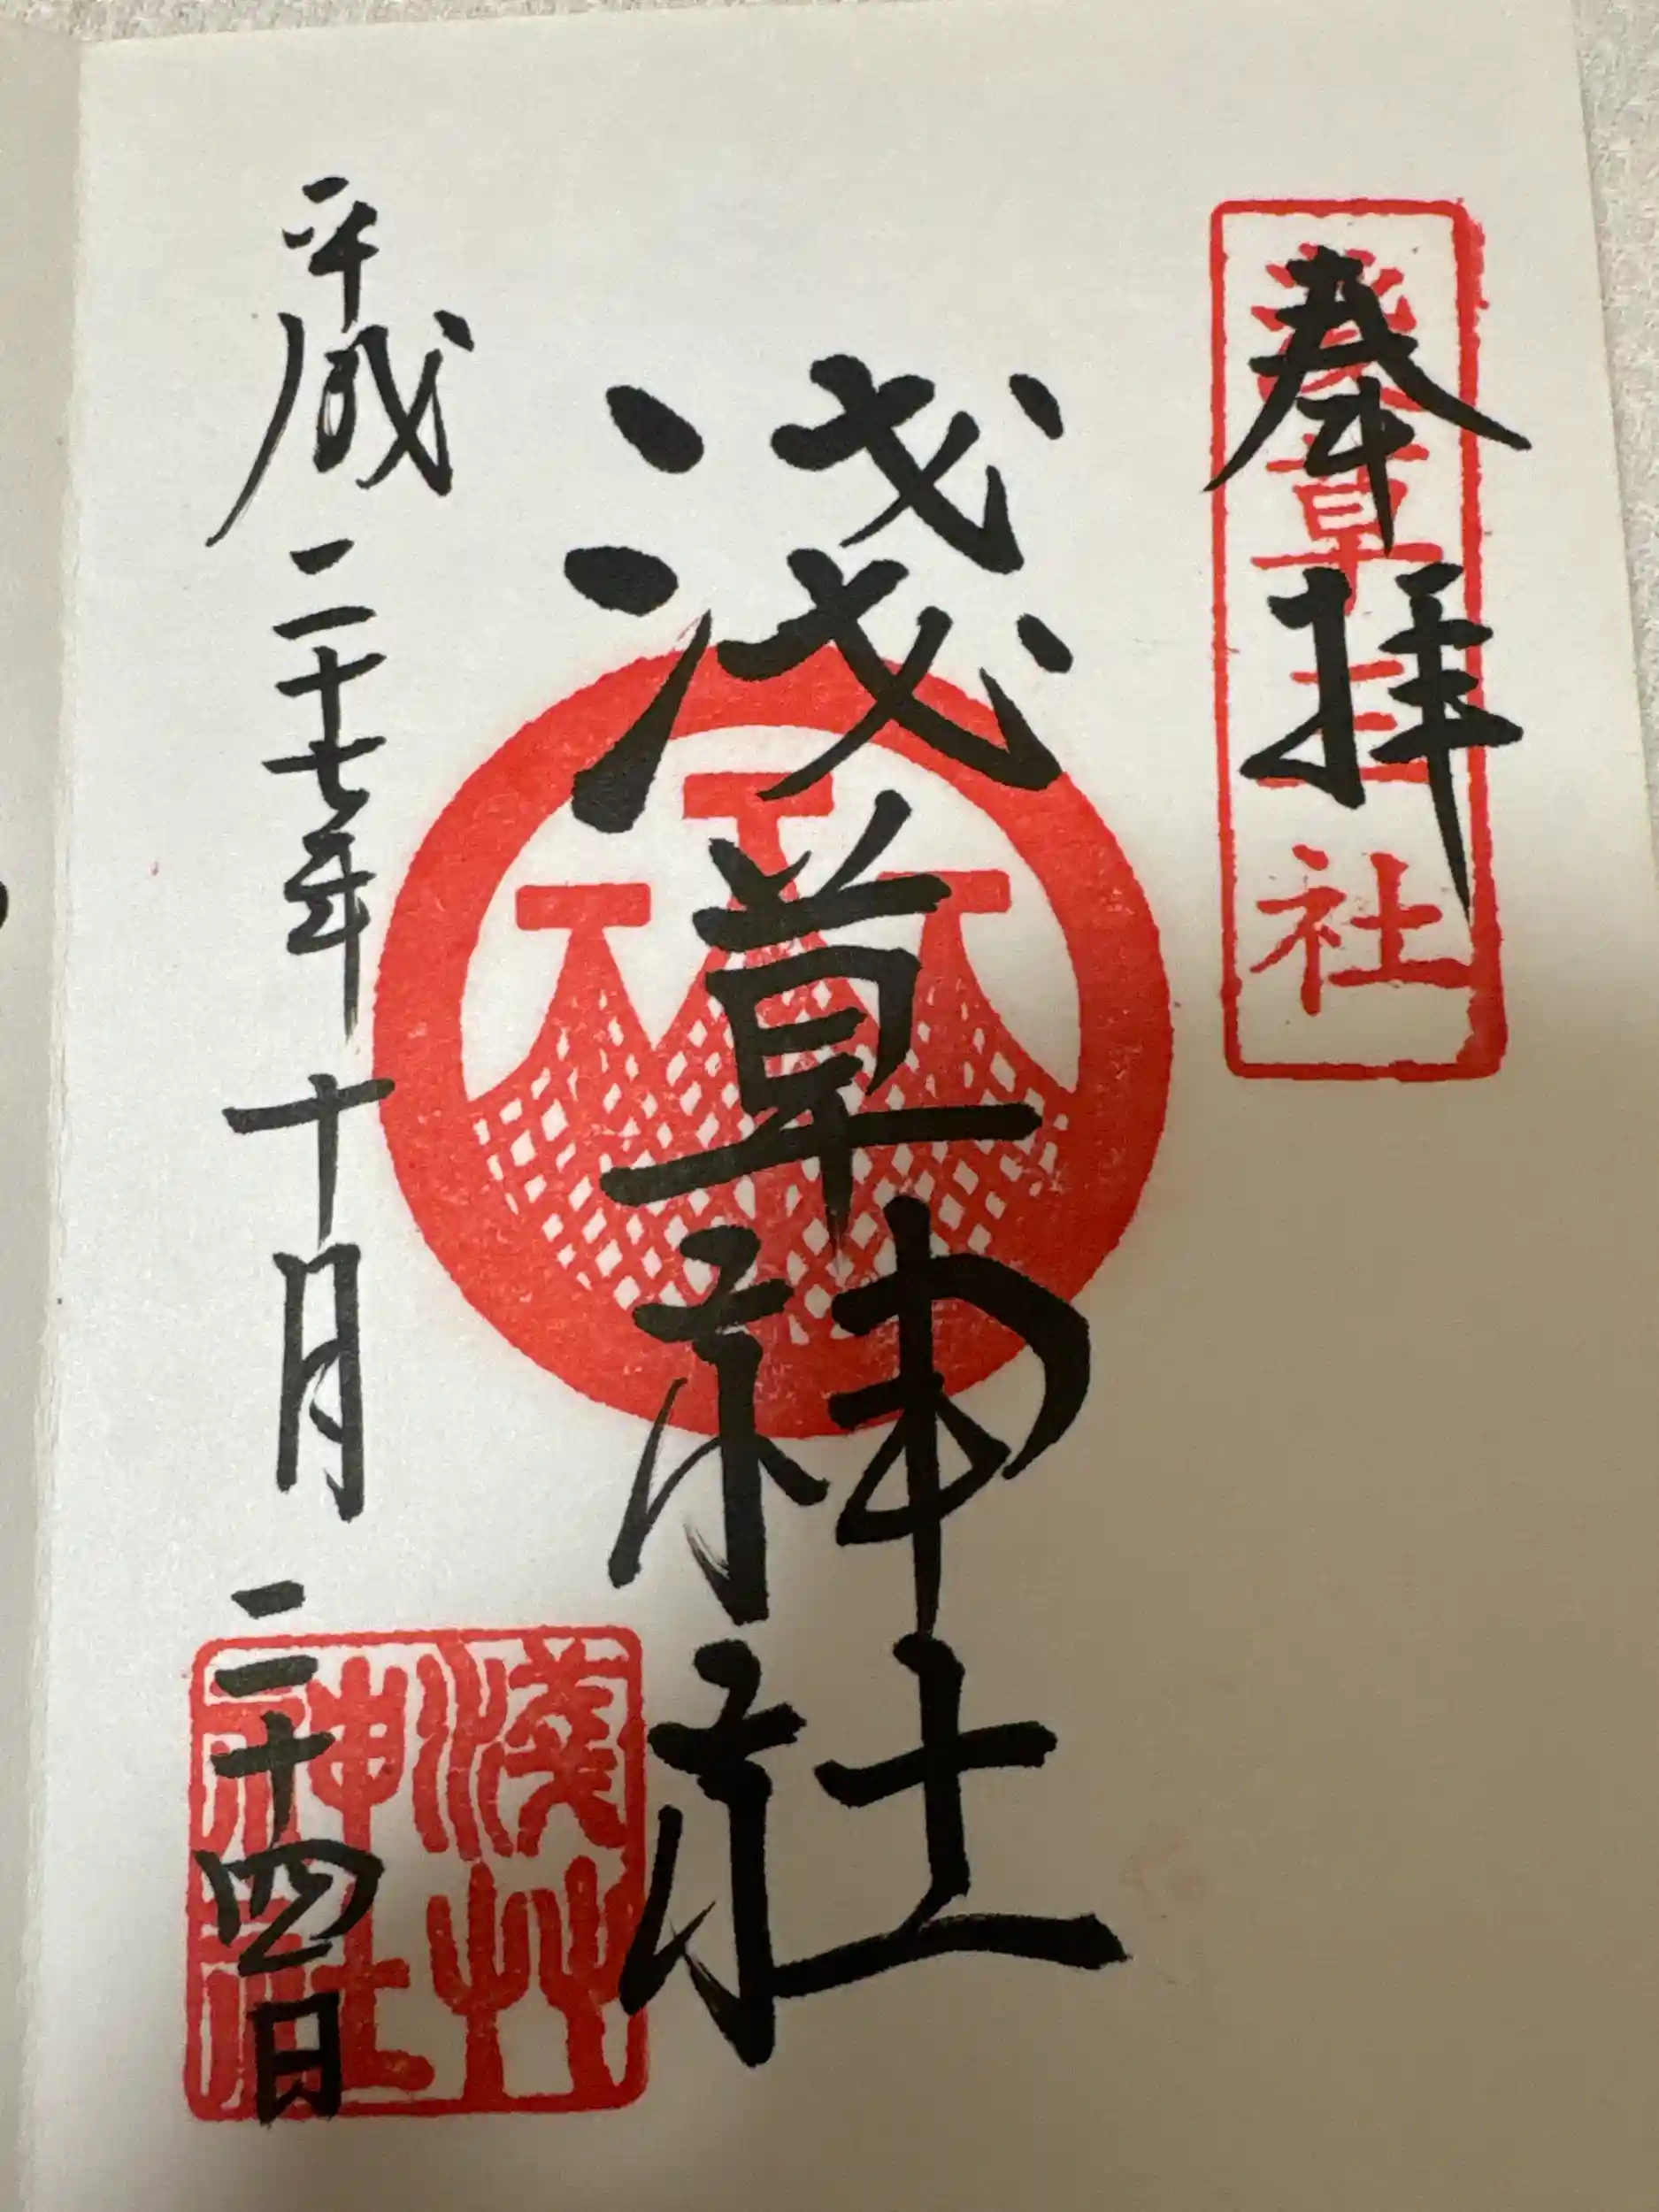 奉拝
淺草三社
淺草神社
平成二十七年十月二十四日
淺草神社